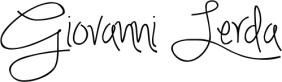 Giovanni Lerda